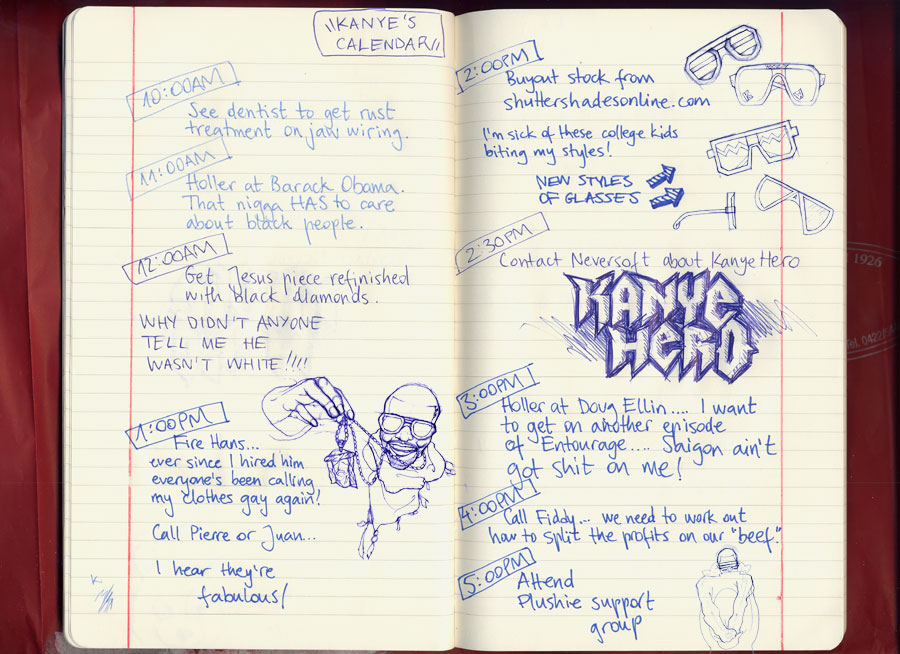 "KANYE'S
CALENDAR"
10:00AM
See dentist to get rust
treatment on jaw wiring.
11:00AM
Holler at Barack Obama.
That nigga HAS to care
about black people.
12:00AM
Get Jesus piece refinished
with black diamonds.
WHY DIDN'T ANYONE
TELL ME HE
WASN'T WHITE!!!!
1:00PM
Fire Hans...
ever since I hired him
everyone's been calling
my clothes gay again!
Call Pierre or Juan...
I hear they're
fabulous!
K
2:00PM
Buyout stock from
shuttershadesonline.com
I'm sick of these college kids
biting my styles!
NEW STYLES
OF GLASSES
K W
2:30PM
Contact Neversoft about Kanye Hero
KANYE
HERO
3:00PM
Holler at Doug Ellin.... I want
to get on another episode
of Entourage.... Saigon ain't
got shit on me!
4:00PM
Call Fiddy... we need to work out
how to split the profits on our "beef."
5:00PM
Attend
Plushie support
group
1926
Tel. 0422